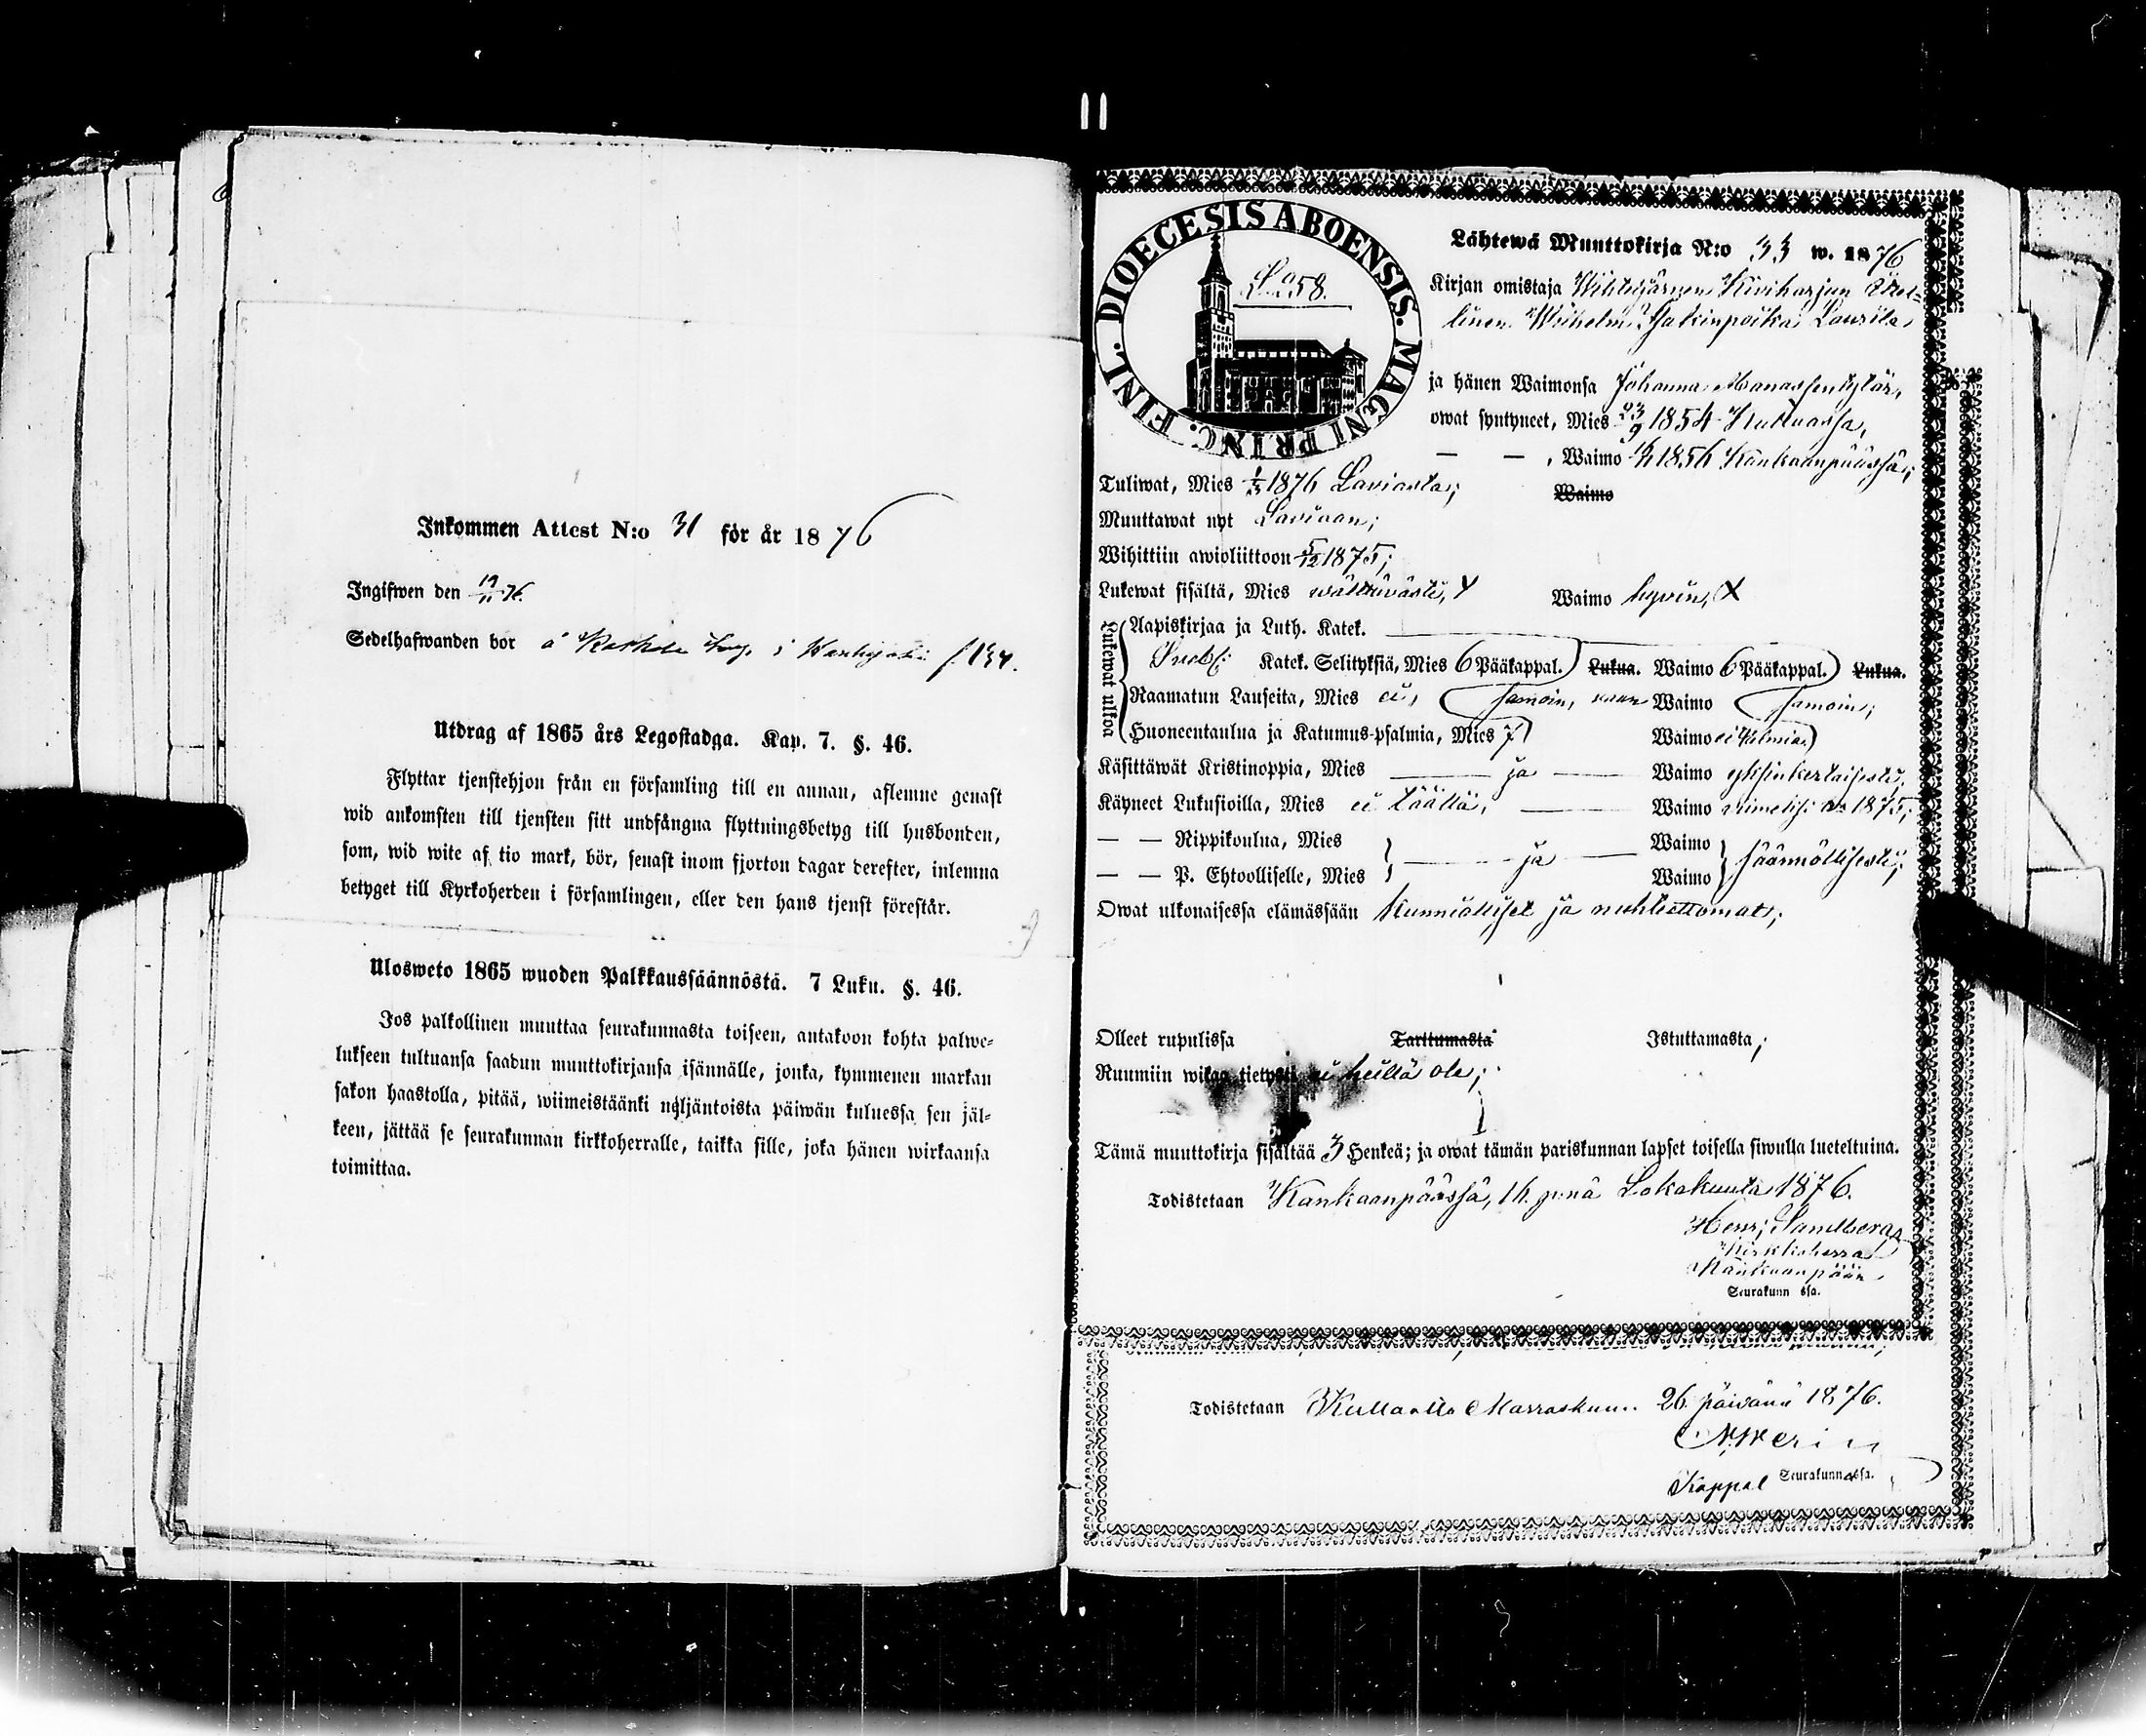 Inkommen Attest N:o 31 för år 1876
Ingifwen den 19/11 76.
Sedelhafwanden bor å i
Utdrag af 1865 års Legostadga. Kap. 7. §. 46.
Flyttar tjenstehjon från en församling till en annan, aflemne genast
wid ankomsten till tjensten sitt undfångna flyttningsbetyg till husbonden,
som, wid wite af tio mark, bör, senast inom fjorton dagar derefter, inlemna
betyget till Kyrkoherden i församlingen, eller den hans tjenst förestår.
Ulosweto 1865 wuoden Palkkaussäännöstä. 7 Luku. §. 46.
Jos palkollinen muuttaa seurakunnasta toiseen, antakoon kohta palwe-
lukseen tultuansa saadun muuttokirjansa isännälle, jonka, kymmenen markan
sakon haastolla, pitää, wiimeistäänki neljäntoista päiwän kuluessa sen jäl-
keen, jättää se seurakunnan kirkkoherralle, taikka sille, joka hänen wirkaansa
toimittaa.
DIOECESIS ABOENSIS. MAGNI PRINC. FINL.
58.
Lähtewä Muuttokirja N:o 33 w. 1876
Kirjan omistaja Kiviharjun
Wilhelm Laurila
ja hänen Waimonsa Johanna Manassentytär,
owat syntyneet, Mies 23/9 1854
— — , Waimo 1856 Kankaanpäässä;
Tuliwat, Mies 1876 Laviasta; Waimo
Muuttawat nyt Laviaan;
Wihittiin awioliittoon 5/12 1875;
Lukewat sisältä, Mies välttävästi, Waimo hyvin,
Lukewat ulkoa
Aapiskirjaa ja Luth. Katek.
Katek. Selityksiä, Mies 6 Pääkappal. Lukua. Waimo 6 Pääkappal. Lukua.
Raamatun Lauseita, Mies ei, samoin, Waimo samoin;
Huoneentaulua ja Katumus-psalmia, Mies 7 Waimo
Käsittäwät Kristinoppia, Mies ja Waimo yksinkertaisesti;
Käyneet Lukusioilla, Mies ei täällä, Waimo viimeksi 1875;
— — Rippikoulua, Mies ja Waimo säännöllisesti;
— — P. Ehtoolliselle, Mies Waimo
Owat ulkonaisessa elämässään kunnialliset ja nuhteettomat;
Olleet rupulissa Tarttumasta Istuttamasta;
Ruumiin wikaa tietysti ei heillä ole;
Tämä muuttokirja sisältää 3 Henkeä; ja owat tämän pariskunnan lapset toisella siwulla lueteltuina.
Todistetaan Kankaanpäässä, 16 p:nä Lokakuuta 1876.
Sandberg
Kirkkoherra
Kankaanpään
Seurakunn ssa.
Todistetaan Kullaalla Marraskuun 26 päivänä 1876.
Kappal Seurakunnassa.